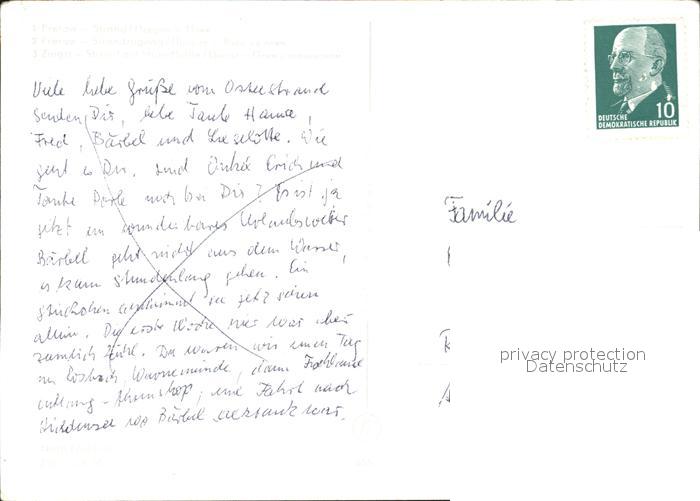 1 Prerow – Strand
2 Prerow –
3 Zingst –
Viele liebe Grüße vom Ostseestrand
senden Dir, liebe Tante Hanna,
Fred, Bärbel und Lieselotte. Wie
geht es Dir, sind Onkel Erich und
Tante noch bei Dir? Es ist ja
jetzt ein wunderbares Urlaubswetter
Bärbel geht nicht aus dem Wasser,
es kann stundenlang gehen. Ein
Stückchen schwimmt sie jetzt schon
allein. Die erste Woche hier war aber
ziemlich kühl. Da waren wir einen Tag
in Rostock, Warnemünde, dann
und eine Fahrt nach
Hiddensee wo Bärbel war.
DEUTSCHE
DEMOKRATISCHE REPUBLIK
10
Familie
privacy protection
Datenschutz